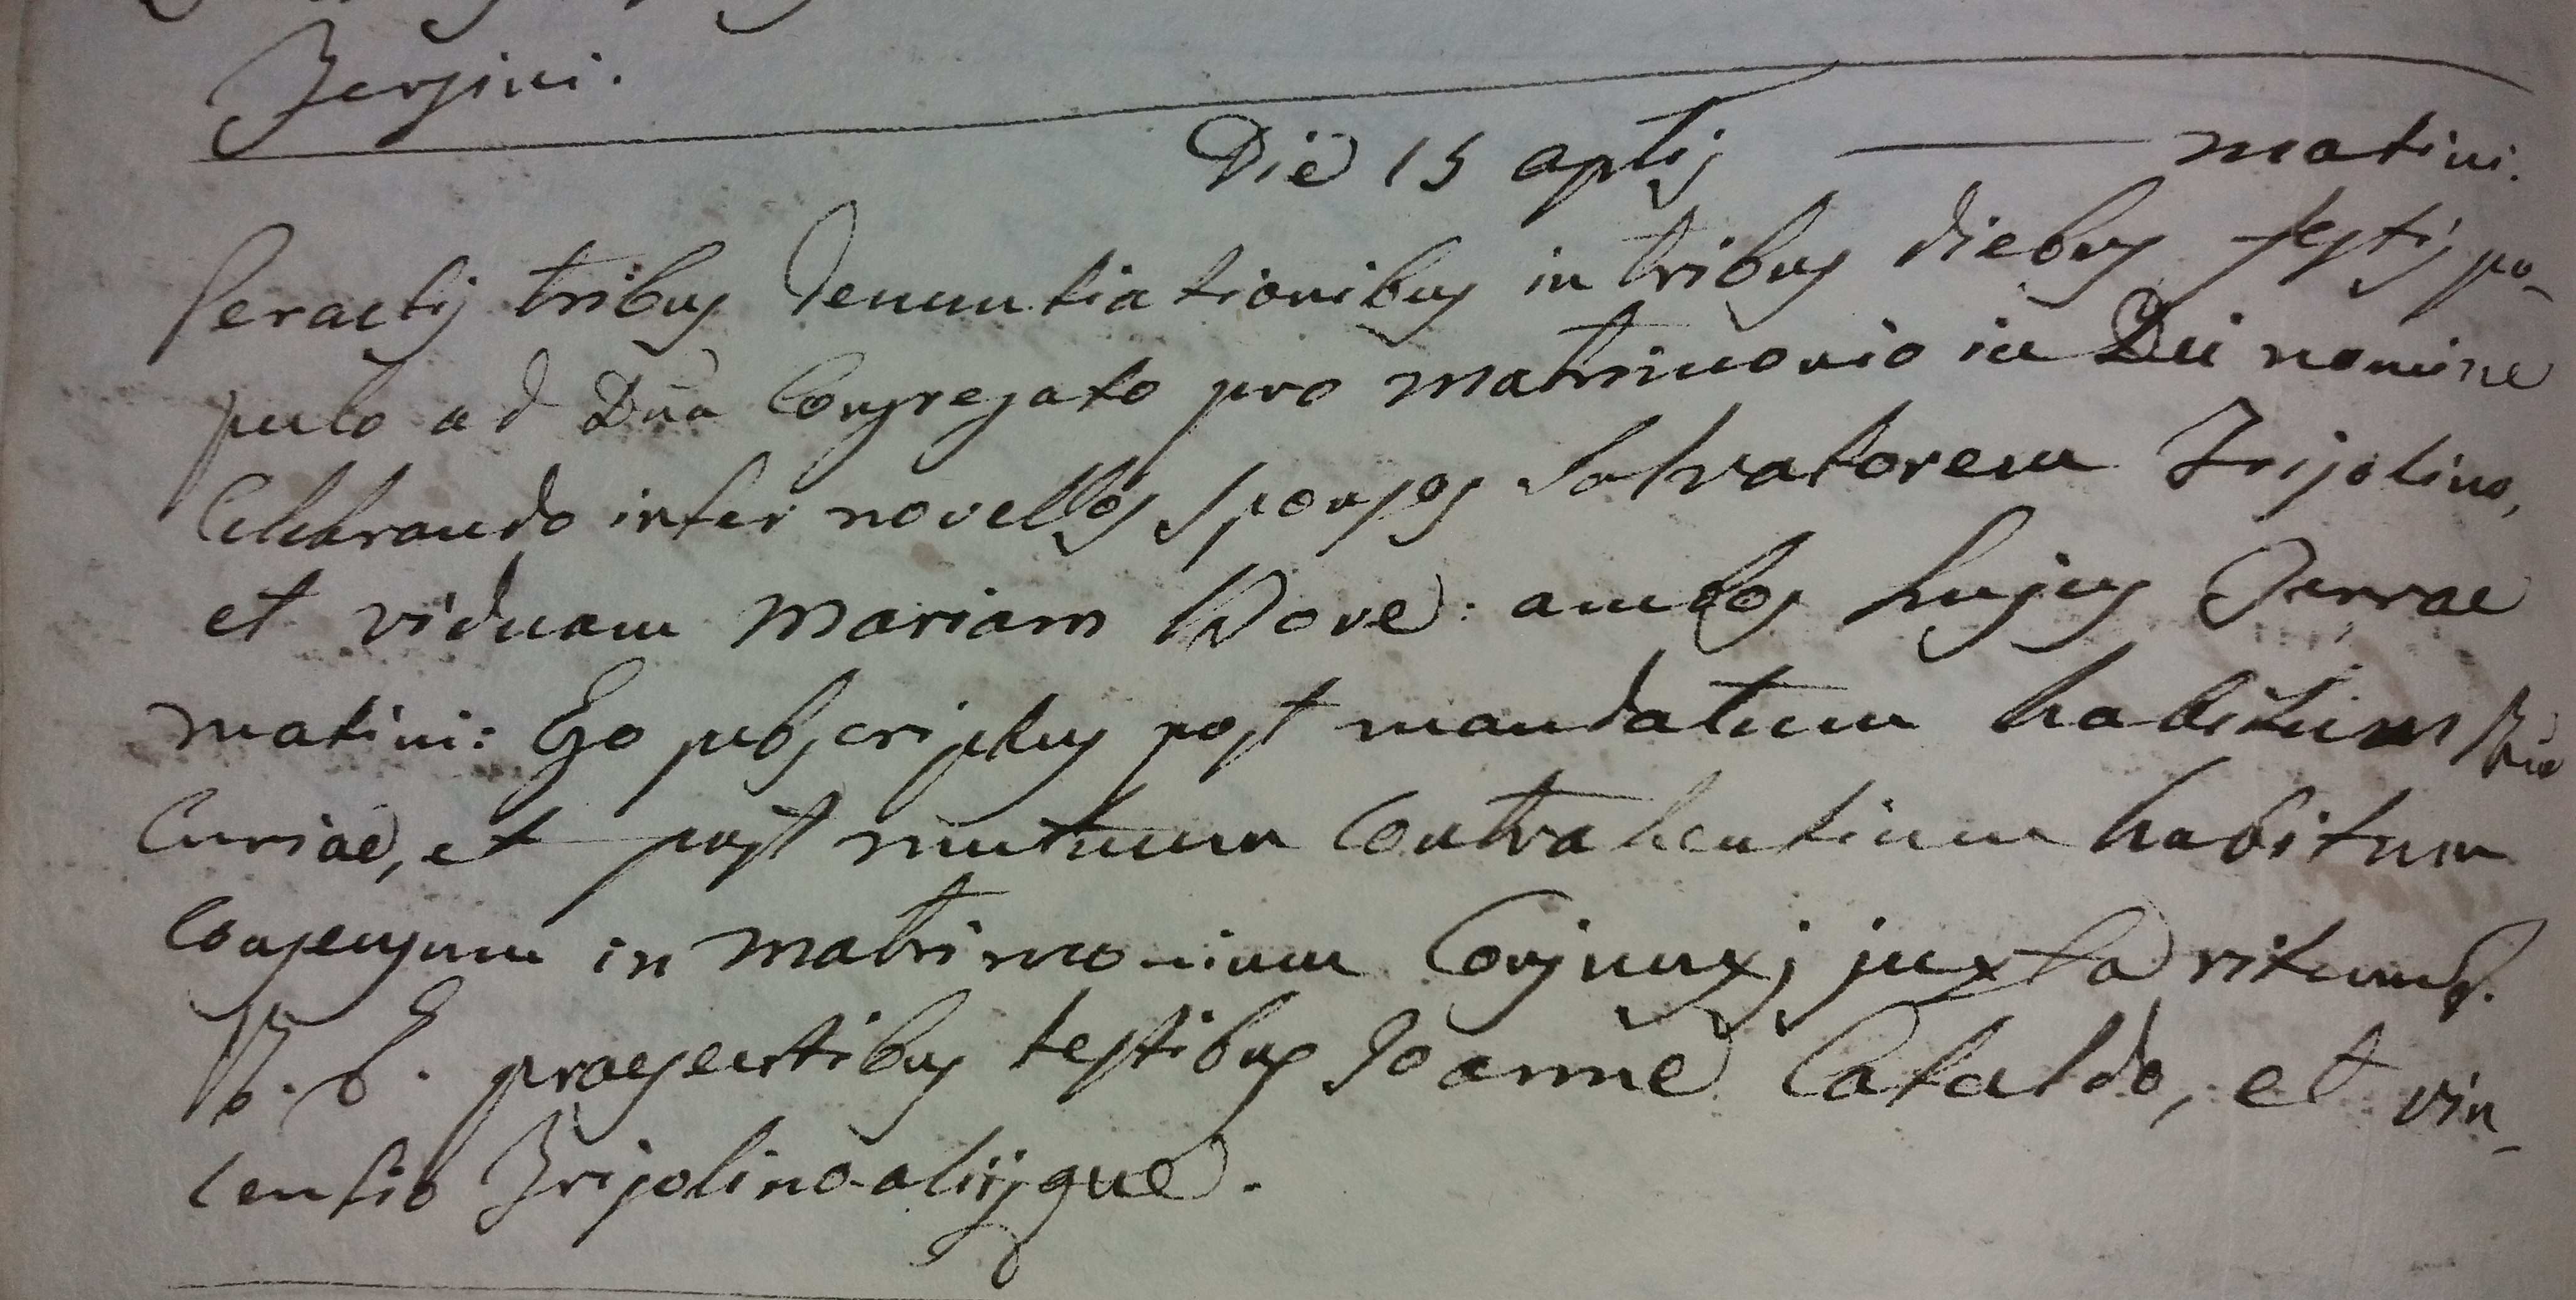 Jersini.
Die 15 aplis — matini.
Peractis tribus denuntiationibus in tribus diebus festis po-
pulo ad Dña Congregato pro matrimonio in Dei nomine
Celebrando inter novellos sponsos Salvatorem Frisolino,
et viduam Mariam Dove: ambos hujus Terrae
matini: Ego subscriptus post mandatum habitum
Curiae, et post mutuum Contrahentium habitum
Consensum in matrimonium Conjunxi juxta ritum S.
R. E. praesentibus testibus Joanne Cataldo, et vin-
centio Frisolino aliisque.